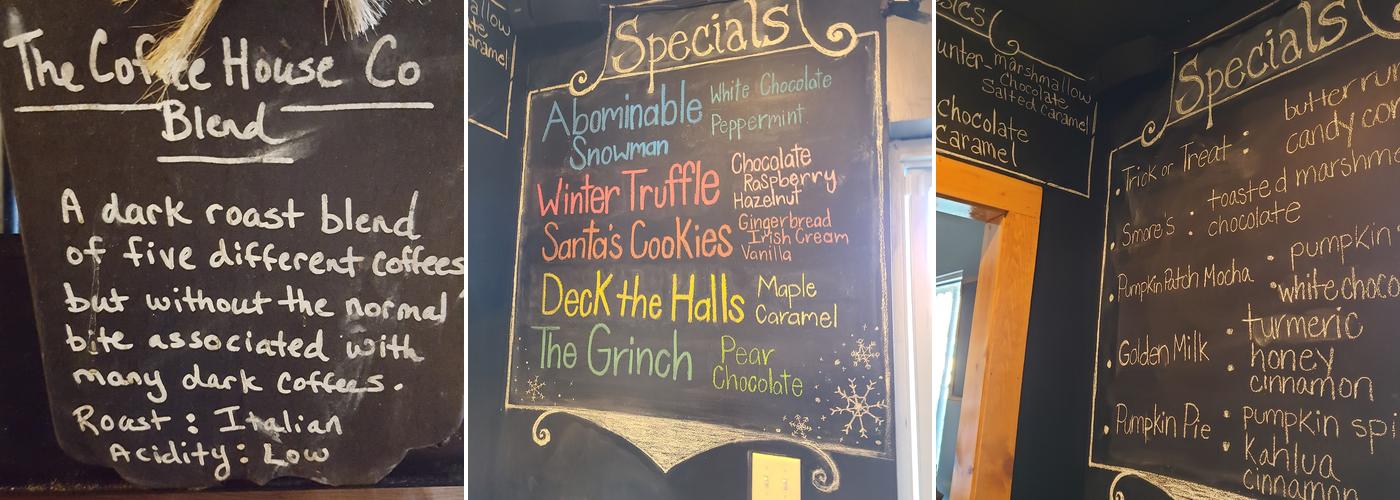 The Coffee House Co
Blend
A dark roast blend
of five different coffees
but without the normal
bite associated with
many dark coffees.
Roast : Italian
Acidity: Low
Specials
Abominable
Snowman
White Chocolate
Peppermint
Winter Truffle
Chocolate
Raspberry
Hazelnut
Santa's Cookies
Gingerbread
Irish Cream
Vanilla
Deck the Halls
Maple
Caramel
The Grinch
Pear
Chocolate
marshmallow
Chocolate
Salted Caramel
chocolate
Caramel
Specials
Trick or Treat :
butter
candy
Smore's :
toasted
chocolate
Pumpkin Patch Mocha
pumpkin
white
Golden Milk
turmeric
honey
cinnamon
Pumpkin Pie
pumpkin
Kahlua
cinnamon